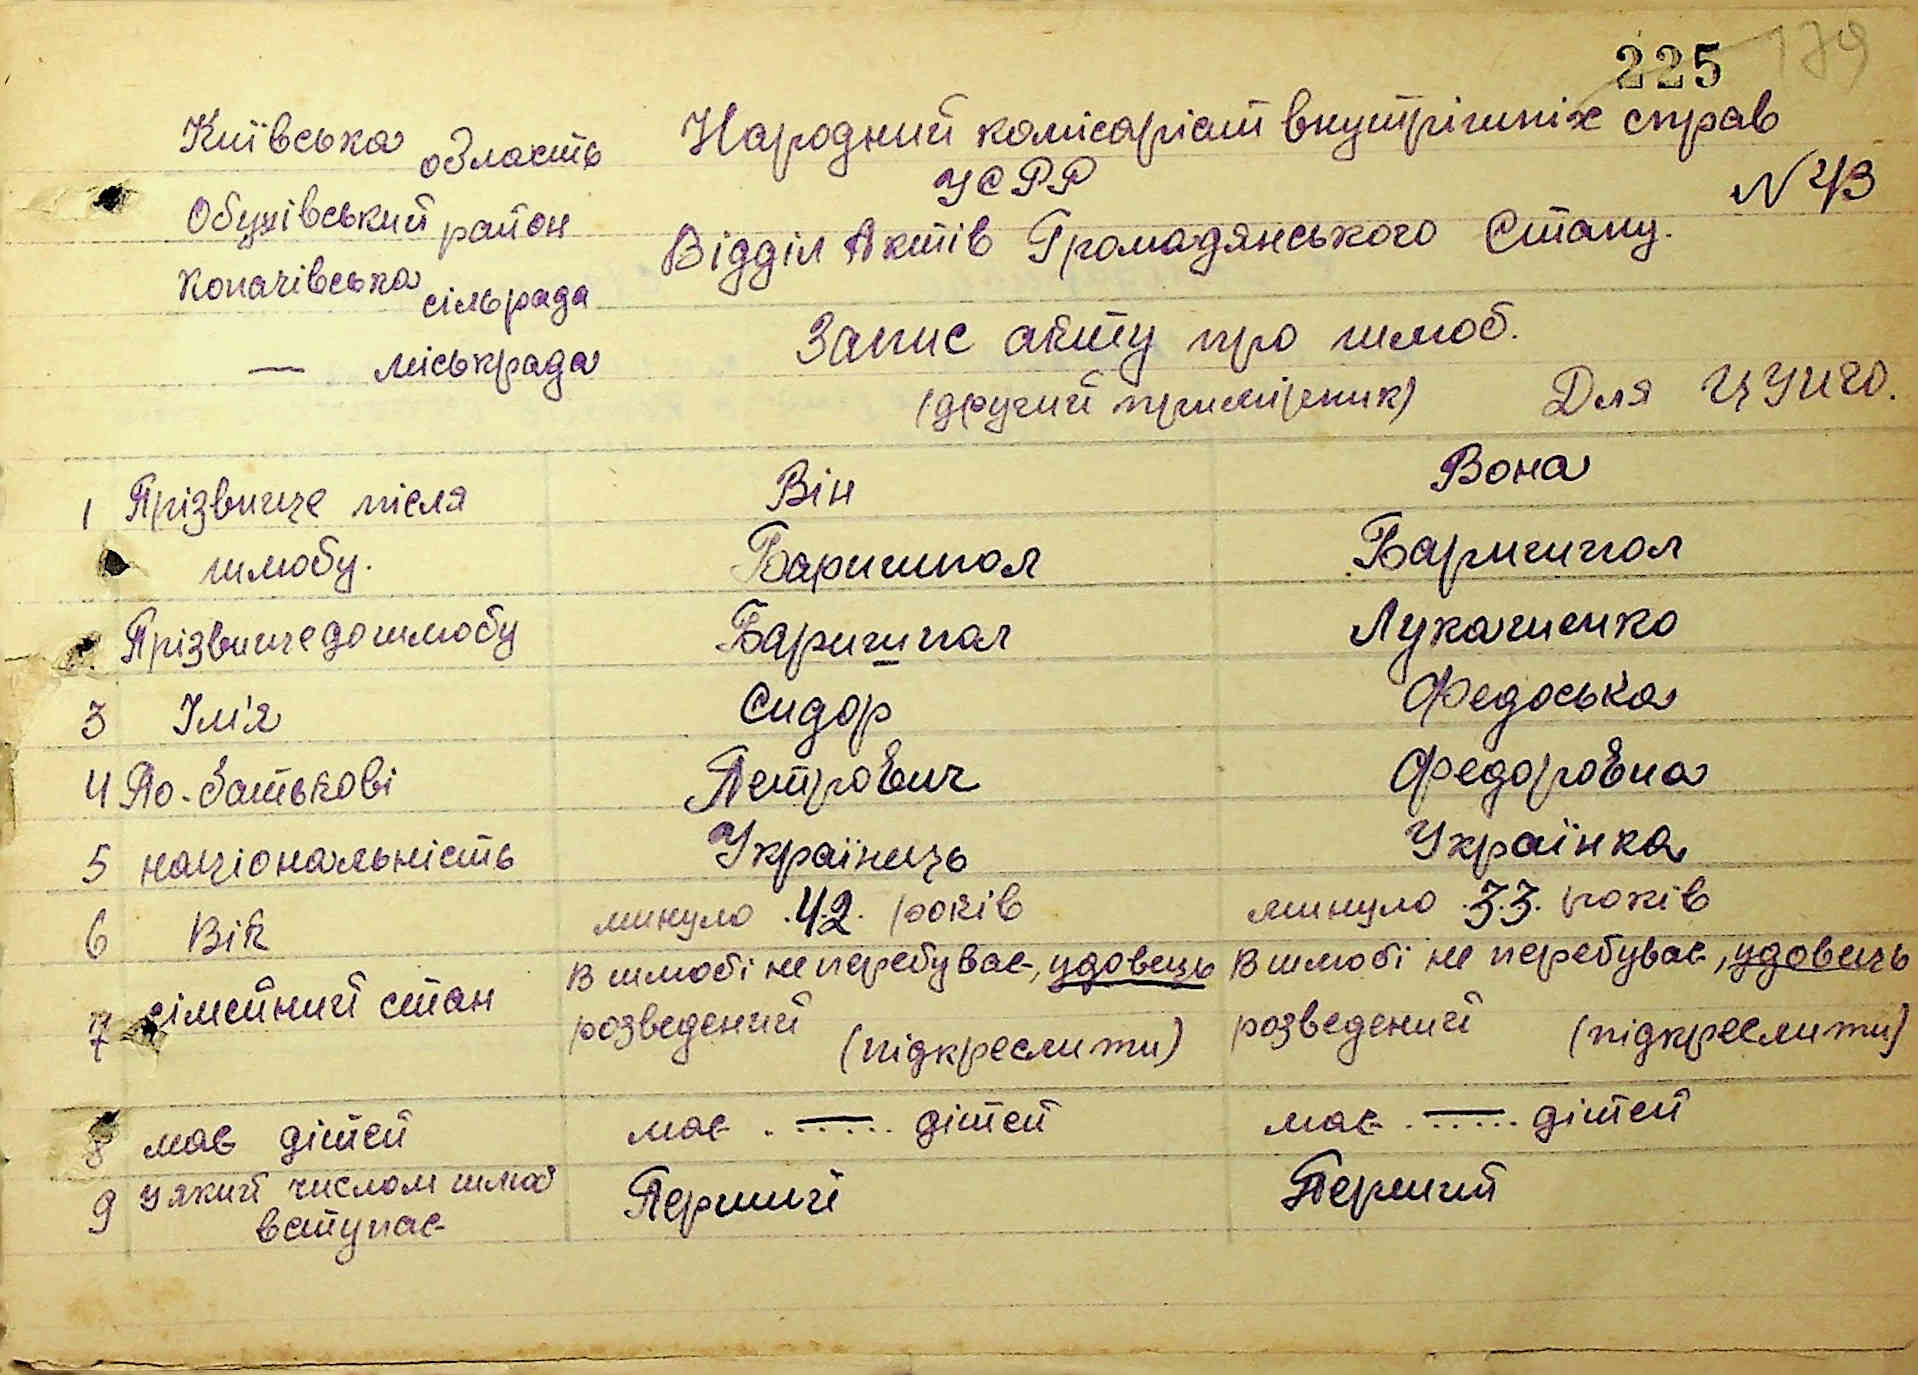 225 179
Київська область
Народний комісаріат внутрішніх справ
УСРР
N 43
Обухівський район
Відділ Актів Громадянського Стану.
Копачівська сільрада
Запис акту про шлюб.
— міськрада
(другий примірник) Для ЦУНГО.
1 Прізвище після Він Вона
шлюбу. Баришпол Баришпол
Прізвище до шлюбу Баришпол Лукашенко
3 Ім'я Сидор Федоська
4 По-батькові Петрович Федоровна
5 національність Українець Українка
6 Вік минуло 42. років минуло 33. років
7 сімейний стан В шлюбі не перебував, удовець В шлюбі не перебував, удовець
розведений (підкреслити) розведений (підкреслити)
8 має дітей має — дітей має — дітей
9 У який числом шлюб Перший Перший
вступає